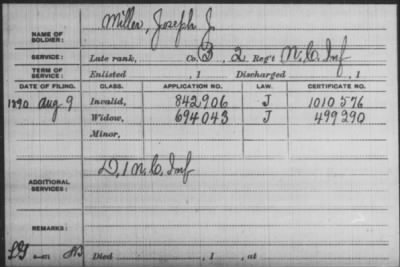 NAME OF SOLDIER: Miller, Joseph J.
SERVICE: Late rank, Co. B, 2 Reg't N.C. Inf
TERM OF SERVICE: Enlisted , 1 Discharged , 1
DATE OF FILING. CLASS. APPLICATION NO. LAW. CERTIFICATE NO.
1890 Aug 9 Invalid, 842906 J 1010576
Widow, 694043 J 499290
Minor,
ADDITIONAL SERVICES: D, 1 N.C. Inf
REMARKS:
Died , 1 , at